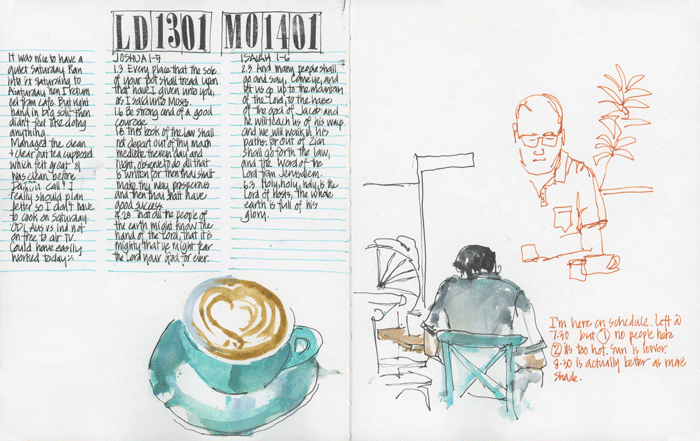 LD1301 MO1401
It was nice to have a
quiet Saturday. Ran
into
Saturday when I return
ed from cafe. But right
hand in big split then
didn't feel like doing
anything.
Managed the clean
& clear out tea cupboard
which felt great &
was clean before
call! I
really should plan
better so I don't have
to cook on Saturday.
ODI, Aus vs Ind not
on free to air TV.
Could have easily
worked today :-
JOSHUA 1-5
1.3 Every place that the sole
of your foot shall tread upon
that have I given unto you,
as I said unto Moses.
1.6 Be strong and of a good
courage
1.8 This book of the law shall
not depart out of thy mouth
meditate therein day and
night, observe to do all that
is written for then thou shalt
make thy way prosperous
and then thou shalt have
good success.
4.23 That all the people of
the earth might know the
hand of the Lord, that it is
mighty that ye might fear
the Lord your God for ever.
ISAIAH 1-6
2.3 And many people shall
go and say, Come ye, and
let us go up to the mountain
of the Lord, to the house
of the God of Jacob and
he will teach us of his ways
and we will walk in his
paths: for out of Zion
shall go forth the law,
and the Word of the
Lord from Jerusalem.
6.3 Holy, holy, holy, is the
Lord of hosts, the whole
earth is full of his
glory.
I'm here on schedule. Left @
7.30 but ① no people here
② its too hot. Sun is lower.
8.30 is actually better as more
shade.